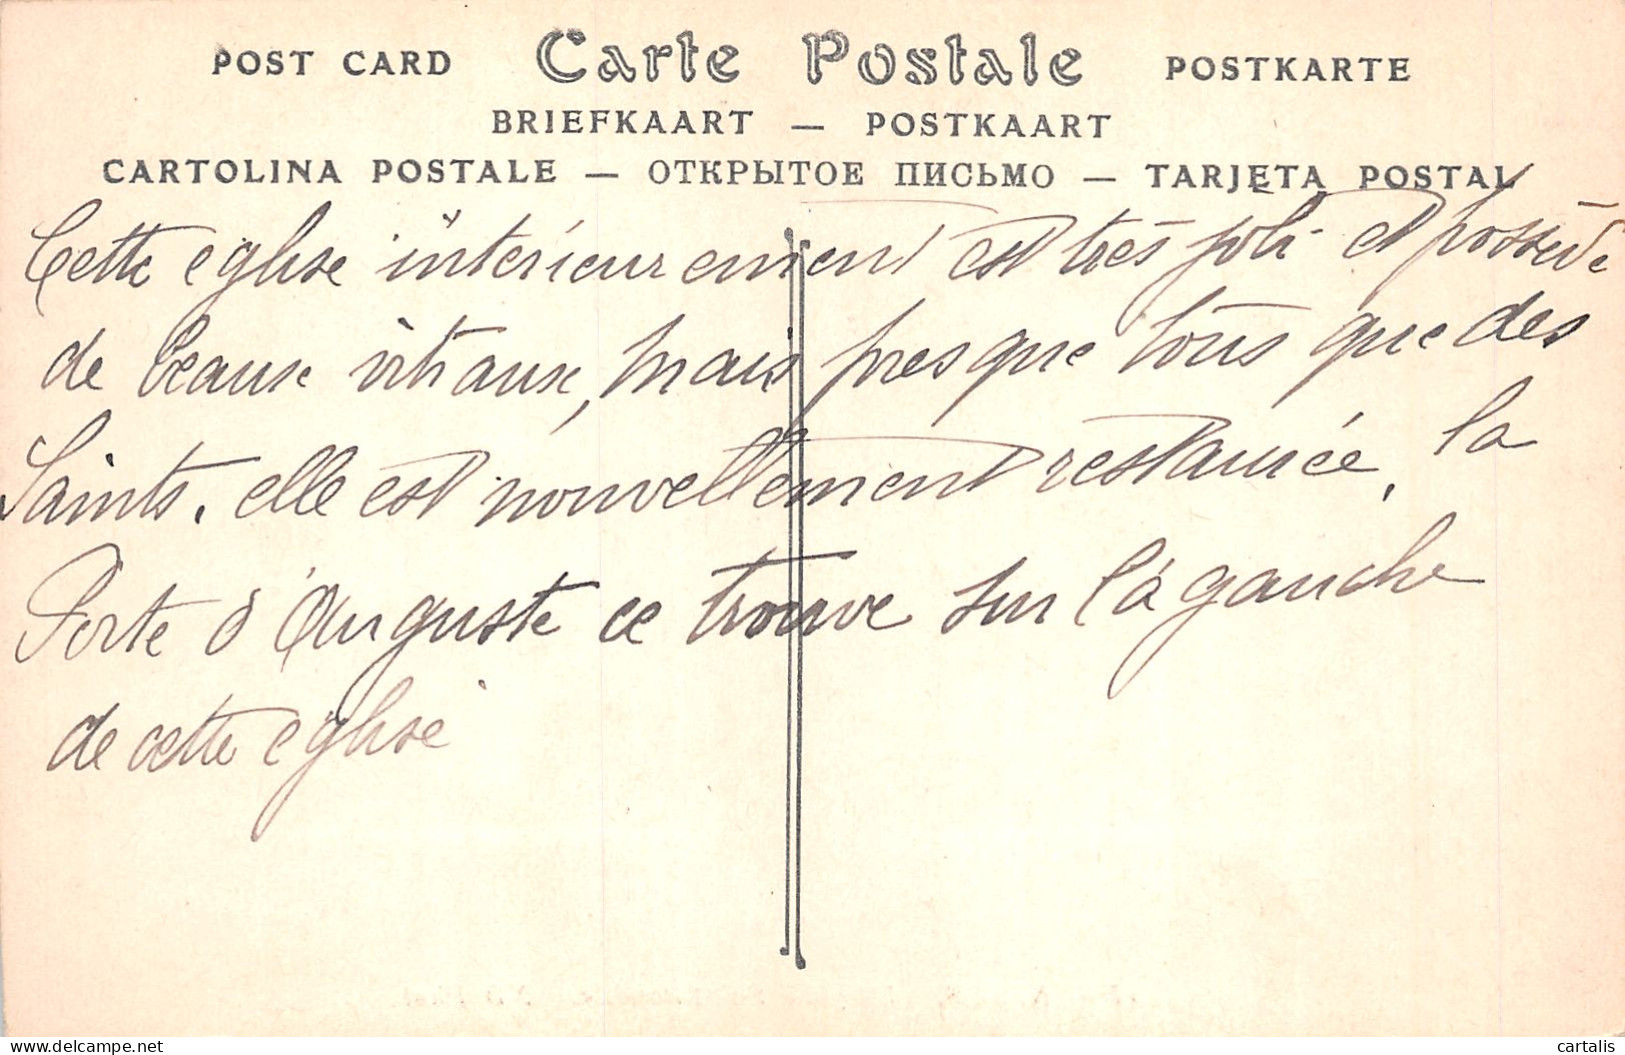 POST CARD Carte Postale POSTKARTE
BRIEFKAART — POSTKAART
CARTOLINA POSTALE — ОТКРЫТОЕ ПИСЬМО — TARJETA POSTAL
Cette eglise intérieurement est très joli et possède
de beaux vitraux, mais presque tous que des
Saints. elle est nouvellement restaurée, la
Porte d'Auguste ce trouve sur la gauche
de cette eglise
delcampe.net
cartalis